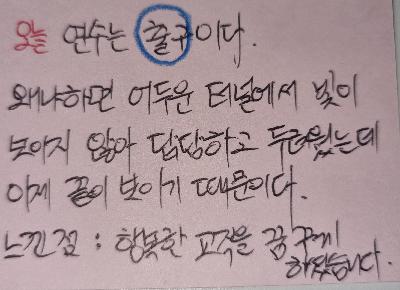 오늘 연수는 출구이다.
왜냐하면 어두운 터널에서 빛이
보이지 않아 답답하고 두려웠는데
이제 끝이 보이기 때문이다.
느낀점 : 행복한 교직을 꿈꾸게
하였습니다.